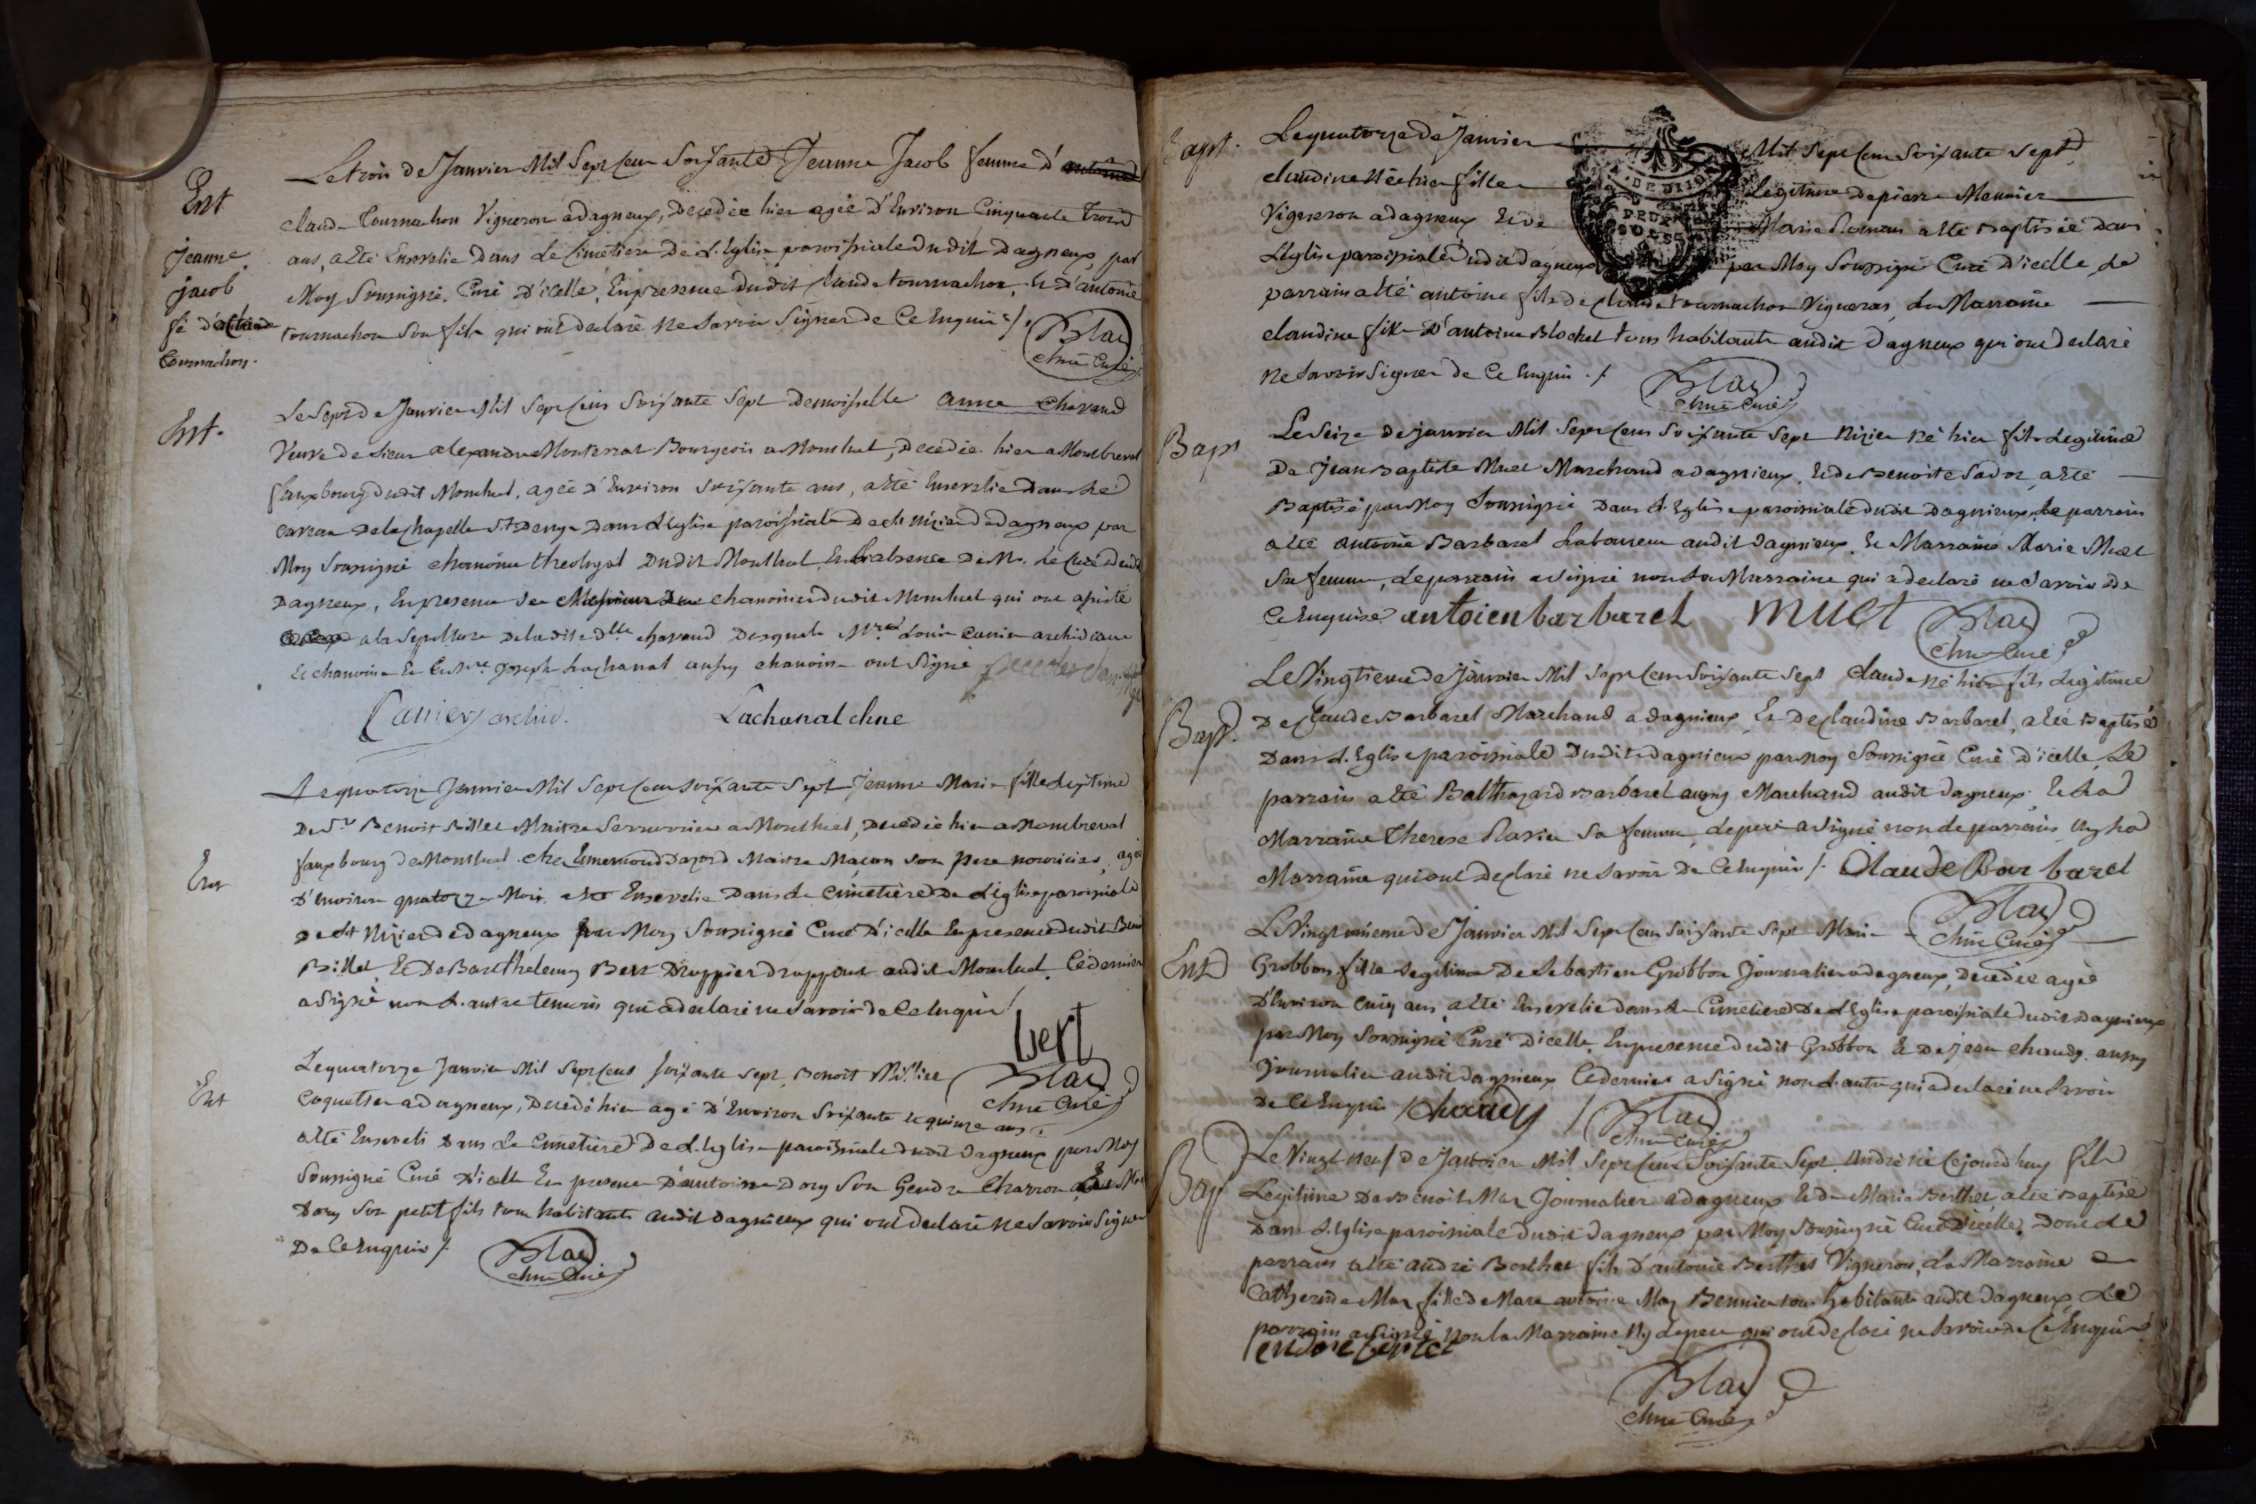 Ent
jeanne
jacob
fe d'
Claude
tournachon.
Le trois de Janvier Mil Sept Cent Soixante Jeanne Jacob femme d'
claude Tournachon Vigneron a dagneux, Decedée hier agée d'Environ Cinquante trois
ans, a Eté Ensevelie Dans Le Cimetiere De L'Eglise paroissiale dudit Dagneux, par
Moy Soussigné, Curé D'icelle, En presence dudit Claude tournachon, & D'antoine
tournachon Son fils qui ont declaré Ne Savoir Signer de Ce Enquis /.
Blay
chne Curé
Ent.
Le Sept de Janvier Mil Sept Cens Soixante Sept Demoiselle anne chavand
Veuve de Sieur alexandre Monterrat Bourgeois a Montluel, Decedée hier a Montbreval
fauxbourg dudit Montluel, agée d'Environ Soixante ans, a Eté Ensevelie Dans Le
Caveau De la chapelle St Denys Dans L'Eglise paroissiale De St Nizier de dagneux par
Moy Soussigné chanoine theologal Dudit Montluel En L'absence De Mr. Le Curé dudit
Dagneux, En presence de chanoines dudit Montluel qui ont assisté
a la Sepulture De ladite dlle chavand Desquels Mre Louis Canier archidiacre
& chanoine & Mre Joseph Lachanal aussy chanoine ont Signé
Canier archid.
Lachanal chne
Ent
Le quatorze Janvier Mil Sept Cent Soixante Sept Jeanne Marie fille Legitime
De Sr Benoit Billet Maitre Serrurier a Montluel, Decedée hier a Montbreval
faux bourg de Montluel chez Maitre Maçon son Pere nourricier, agée
D'Environ quatorze Mois a Eté Ensevelie Dans Le Cimetiere De L'Eglise paroissiale
De St Nizier de dagneux par Moy Soussigné Curé D'icelle En presence dudit
Billet, & De Barthelemy Bert Drappier drappant audit Montluel, Ce dernier
a Signé non L'autre temoin qui a declaré ne Savoir de Ce Enquis /
bert
Blay
chne Curé
Ent
Le quatorze Janvier Mil Sept Cens Soixante Sept, Benoit
Coquetier a dagneux, Decedé hier agé d'Environ Soixante & quinze ans,
a Eté Enseveli Dans Le Cimetiere De L'Eglise paroissiale dudit Dagneux par Moy
Soussigné Curé D'icelle En presence D'antoine Dory Son Gendre Charron &
Dory Son petit fils tous habitants audit Dagnieux qui ont declaré Ne Savoir Signer
De Ce Enquis /.
Blay
chne Curé
Bapt.
Le quatorze De Janvier Mil Sept Cens Soixante Sept
claudine Née hier fille Legitime De pierre Meunier
Vigneron a dagneux & De Marie a Eté Baptisée Dans
L'Eglise paroissiale dudit dagneux par Moy Soussigné Curé D'icelle, Le
parrain a Eté antoine fils de claude tournachon Vigneron, La Marraine
claudine fille D'antoine Blochet tous habitants audit Dagneux qui ont declaré
ne Savoir Signer De Ce Enquis ./.
Blay
chne Curé
Bapt
Le Seize De janvier Mil Sept Cens Soixante Sept Nizier Né hier fils Legitime
De Jean Baptiste Muet Marchand a dagnieux, & de Benoite Sador, a Eté
Baptisé par Moy Soussigné Dans L'Eglise paroissiale dudit Dagnieux Le parrain
a Eté antoine Barbaret Laboureur audit Dagnieux, & Marraine Marie Muet
Sa femme, Le parrain a Signé non La Marraine qui a declaré ne Savoir De
Ce Enquise antoien barbaret muet
Blay
chne Curé
Bapt.
Le Vingtieme De Janvier Mil Sept Cens Soixante Sept claude Né hier fils Legitime
De Claude Barbaret Marchand a dagnieux, & De claudine Barbaret, a Eté Baptisé
Dans L'Eglise paroissiale Dudit dagnieux par Moy Soussigné Curé D'icelle, Le
parrain a Eté Balthazard Barbaret aussy Marchand audit dagneux, & La
Marraine Therese Ravier Sa femme, Le pere a Signé non Le parrain Ny La
Marraine qui ont Declaré ne Savoir De Ce Enquis /. Claude Bar baret
Blay
chne Curé
Ent
Le Vingt unieme De Janvier Mil Sept Cens Soixante Sept Marie
Grobbon fille Legitime De Sebastien Grobbon Journalier a dagneux, Decedée agée
D'Environ Cinq ans, a Eté Ensevelie dans Le Cimetiere De L'Eglise paroissiale dudit Dagnieux
par Moy Soussigné Curé D'icelle, En presence dudit Grobbon & De Jean chaudy aussy
Journalier audit dagnieux, Ce dernier a Signé non L'autre qui a declaré ne Savoir
De Ce Enquis / chaudy /
Blay
chne Curé
Bap
Le Vingt neuf De Janvier Mil Sept Cens Soixante Sept, André né Cejourd'huy fils
Legitime De Benoit Mas Journalier a dagneux & De Marie Berthet, a Eté Baptisé
Dans L'Eglise paroissiale dudit Dagneux par Moy Soussigné Curé D'icelle, Dont Le
parrain a Eté André Berthet fils D'antoine Berthet Vigneron, La Marraine
Catherine Mas fille De Marc antoine Mas tous habitants audit Dagneux, Le
parrain a Signé non La Marraine Ny Le pere qui ont declaré ne Savoir de Ce Enquis
Blay
chne Curé